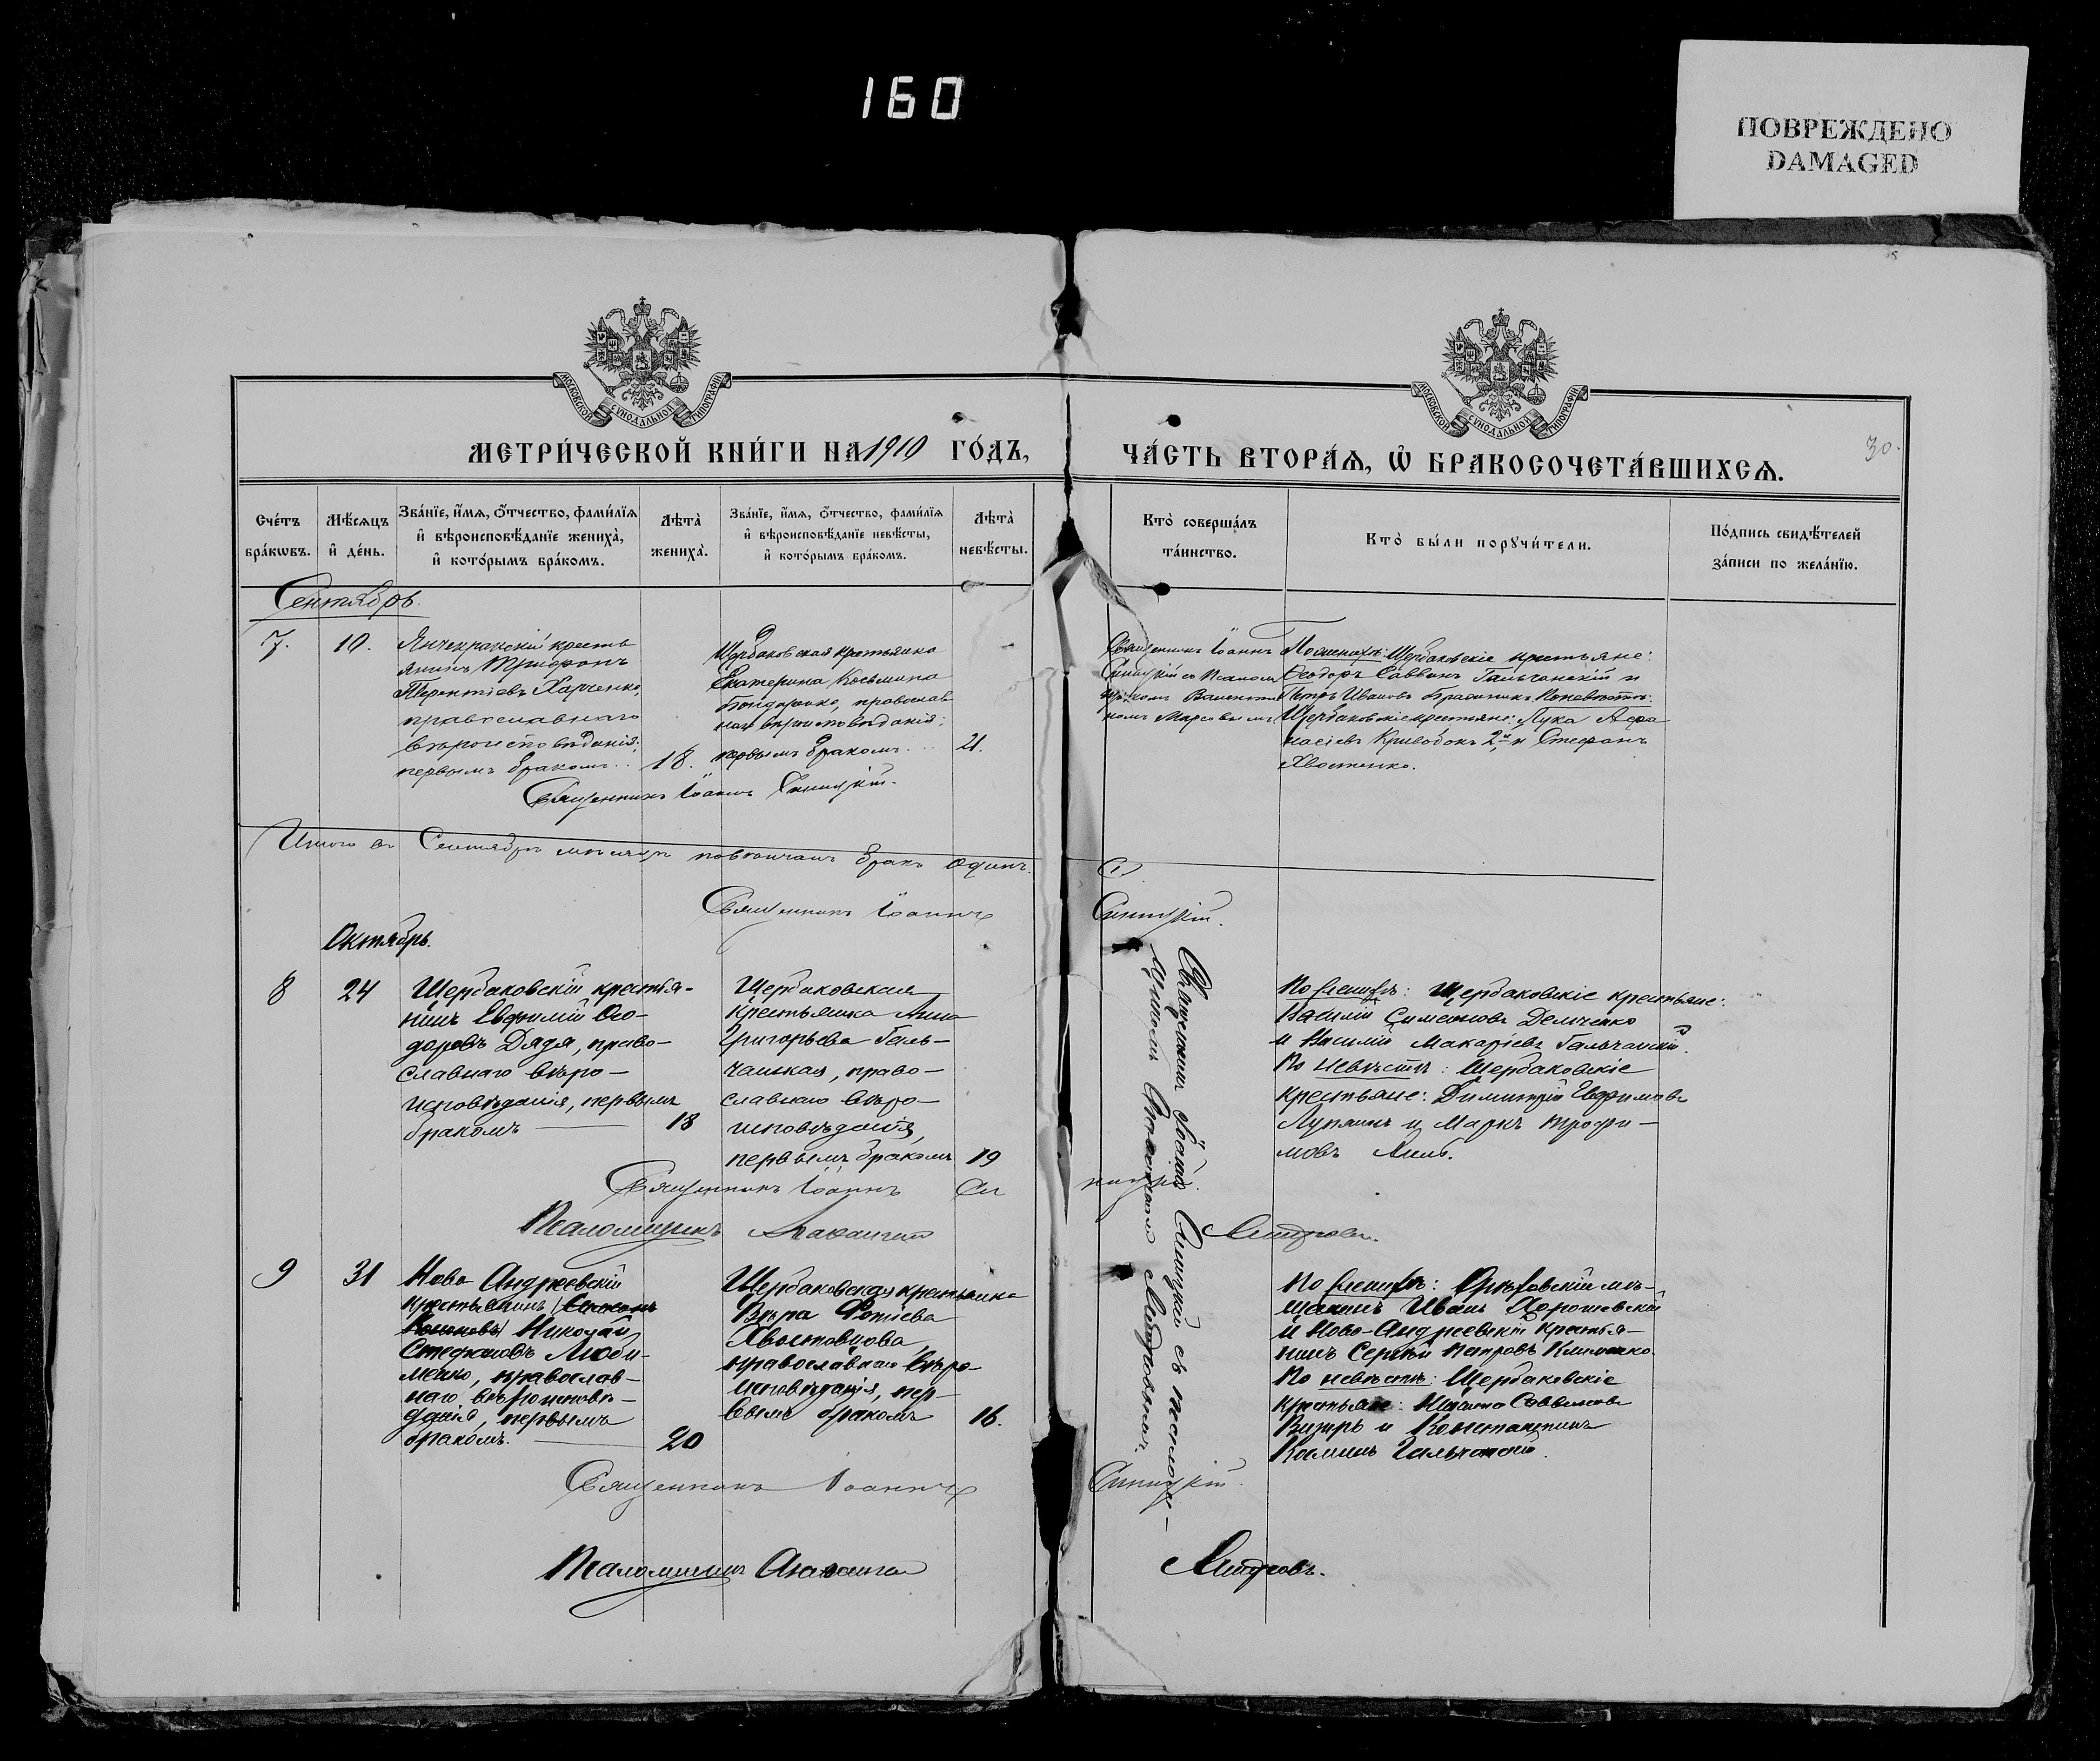 160
ПОВРЕЖДЕНО
DAMAGED
МОСКОВСКОЙ СУНОДАЛЬНОЙ ТИПОГРАФІИ
МОСКОВСКОЙ СУНОДАЛЬНОЙ ТИПОГРАФІИ
МЕТРИ́ЧЕСКОЙ КНИ́ГИ НА 1910 ГО́ДЪ,
ЧА́СТЬ ВТОРА́Ѧ, Ѡ БРАКОСОЧЕТА́ВШИХСѦ.
30.
Сче́тъ
бра́кѡвъ.
Мѣ́сѧцъ
и҆ де́нь.
Зва́нїе, и҆́мѧ, ѻ҆́тчество, фами́лїѧ
и҆ вѣроисповѣ́данїе жениха̀,
и҆ кото́рымъ бра́комъ.
Лѣта̀
жениха̀.
Зва́нїе, и҆́мѧ, ѻ҆́тчество, фами́лїѧ
и҆ вѣроисповѣ́данїе невѣ́сты,
и҆ кото́рымъ бра́комъ.
Лѣта̀
невѣ́сты.
Кто̀ соверша́лъ
та́инство.
Кто̀ бы́ли порꙋчи́тели.
По́дпись свидѣ́телей
за́писи по жела́нїю.
Сентябрь.
7.
10.
Янчекракскій кресть
янинъ Трифонъ
Терентіевъ Харченко,
православнаго
вѣроисповѣданія;
первымъ бракомъ..
18.
Щербаковская крестьянка
Екатерина Косьмина
Бондаренко, православ
наго вѣроисповѣданія;
первымъ бракомъ...
21.
Священникъ Іоаннъ
Синицкій со Псалом
щикомъ Валенти
номъ
По женихѣ: Щербаковскіе крестьяне:
Ѳеодоръ Саввинъ Гальчанскій и
Петръ Ивановъ По невѣстѣ:
Щербаковскіе крестьяне: Лука Аѳа
насіевъ Кривобокъ 2й и Стефанъ
Хвостенко.
Священникъ Іоаннъ Синицкій.
Итого въ Сентябрѣ мѣсяцѣ повѣнчанъ бракъ одинъ. (1)
Священникъ Іоаннъ Синицкій.
Октябрь.
8
24
Щербаковскій крестья-
нинъ Евфимій Ѳео-
доровъ Дядя, право-
славнаго вѣро-
исповѣданія, первымъ
бракомъ
18
Щербаковская
крестьянка Анна
Григорьева Галь-
чанская, право-
славнаго вѣро-
исповѣданія,
первымъ бракомъ
19
Священникъ Іоаннъ Синицкій съ псалом-
щикомъ
По женихѣ: Щербаковскіе крестьяне:
Василій Симеоновъ Демченко
и Василій Макаріевъ Гальчанскій.
По невѣстѣ: Щербаковскіе
крестьяне: Димитрій Евфимовъ
и Маркъ Трофи-
мовъ
Священникъ Іоаннъ Синицкій.
Псаломщикъ
9
31
Ново Андреевскій
крестьянинъ
Николай
Стефановъ Люби-
менко, православ-
наго вѣроисповѣ-
данія, первымъ
бракомъ.
20
Щербаковская крестьянка
Вѣра Фотіева
Хвостовцова,
православнаго вѣро-
исповѣданія, пер-
вымъ бракомъ
16.
По женихѣ: Орѣховскій мѣ-
щанинъ Иванъ Хорошевскій
и Ново-Андреевскій крестья-
нинъ Сергѣй Петровъ Клименко.
По невѣстѣ: Щербаковскіе
крестьяне:
Визирь и Константинъ
Косминъ Гальчанскій.
Священникъ Іоаннъ Синицкій.
Псаломщикъ